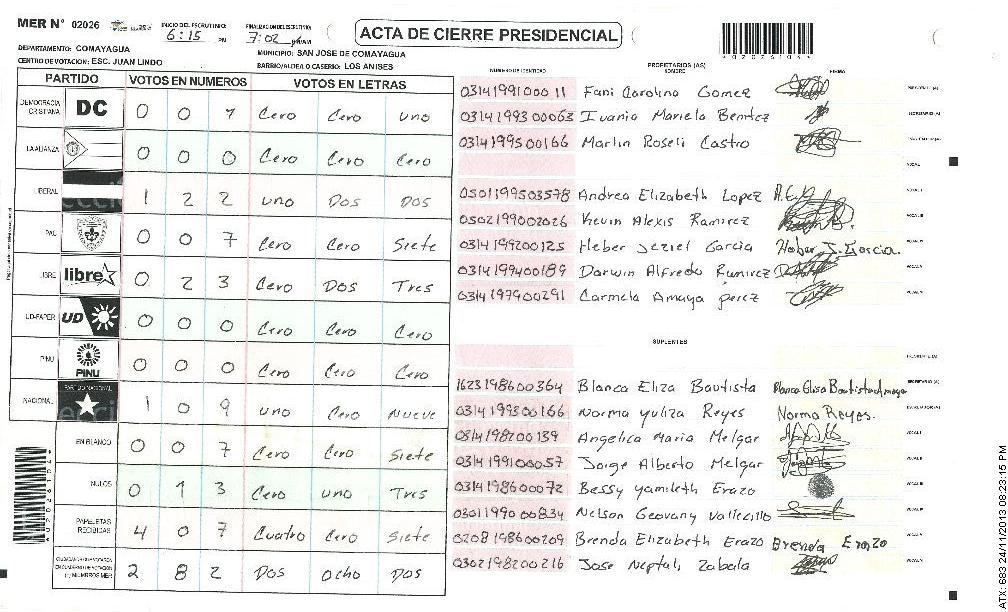 MER N° 02026
INICIO DEL ESCRUTINIO: 6:15 PM
FINALIZACION DEL ESCRUTINIO: 7:02
ACTA DE CIERRE PRESIDENCIAL
DEPARTAMENTO: COMAYAGUA
MUNICIPIO: SAN JOSE DE COMAYAGUA
CENTRO DE VOTACION: ESC. JUAN LINDO
BARRIO/ALDEA O CASERIO: LOS ANISES
PARTIDO VOTOS EN NUMEROS VOTOS EN LETRAS
DEMOCRACIA CRISTIANA DC 0 0 1 Cero Cero uno
LA ALIANZA 0 0 0 Cero Cero Cero
LIBERAL 1 2 2 uno Dos Dos
PAC 0 0 7 Cero Cero Siete
LIBRE libre 0 2 3 Cero Dos Tres
UD-FAPER UD 0 0 0 Cero Cero Cero
PINU PINU 0 0 0 Cero Cero Cero
NACIONAL PARTIDO NACIONAL 1 0 9 uno Cero Nueve
EN BLANCO 0 0 7 Cero Cero Siete
NULOS 0 1 3 Cero uno Tres
PAPELETAS RECIBIDAS 4 0 7 Cuatro Cero Siete
2 8 2 Dos ocho Dos
NUMERO DE IDENTIDAD PROPIETARIOS (AS) NOMBRE FIRMA
0314199100011 Fani Carolina Gomez PRESIDENTE (A)
0314199300063 Ivania Mariela Benitez SECRETARIO (A)
0314199500166 Marlin Roseli Castro
VOCAL I
0501199503578 Andrea Elizabeth Lopez A.E.
0502199002026 Kevin Alexis Ramirez
0314199200125 Heber Jeziel Garcia Heber J. Garcia.
0314199400189 Darwin Alfredo Ramirez
0314197900291 Carmela Amaya perez
SUPLENTES
PRESIDENTE (A)
1623198600364 Blanca Eliza Bautista Blanca Elisa Bautista SECRETARIO (A)
0314199300166 Norma yuliza Reyes Norma Reyes.
0314198200139 Angelica Maria Melgar
0314199100057 Jorge Alberto Melgar
0314198600072 Bessy yamileth Erazo
0301199000834 Nelson Geovany Vallecillo
0208198600209 Brenda Elizabeth Erazo Brenda Erazo
0302198200216 Jose Neptali Zabala
ATX: 683 24/11/2013 08:23:15 PM